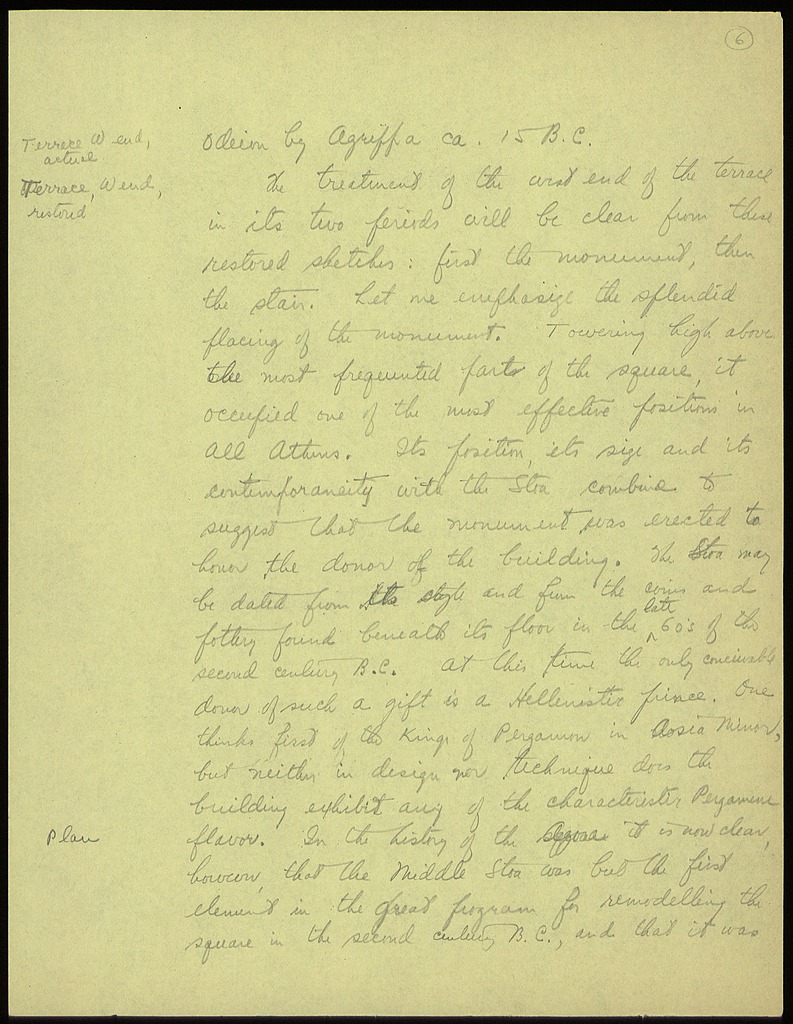 6
Terrace W end,
actual
Terrace, W end,
restored
Odeion by Agrippa ca. 15 B.C.
The treatment of the west end of the terrace
in its two periods will be clear from these
restored sketches: first the monument, then
the stair. Let me emphasize the splendid
placing of the monument. Towering high above
the most frequented parts of the square, it
occupied one of the most effective positions in
all Athens. Its position, its size and its
contemporaneity with the Stoa combine to
suggest that the monument was erected to
honor the donor of the building. The Stoa may
be dated from its style and from the coins and
late
pottery found beneath its floor in the 60's of the
second century B.C. At this time the only conceivable
donor of such a gift is a Hellenistic prince. One
thinks first of the Kings of Pergamon in Asia Minor,
but neither in design nor technique does the
building exhibit any of the characteristic Pergamene
Plan
flavor. In the history of the Agora it is now clear,
however, that the Middle Stoa was but the first
element in the great program for remodelling the
square in the second century B.C., and that it was